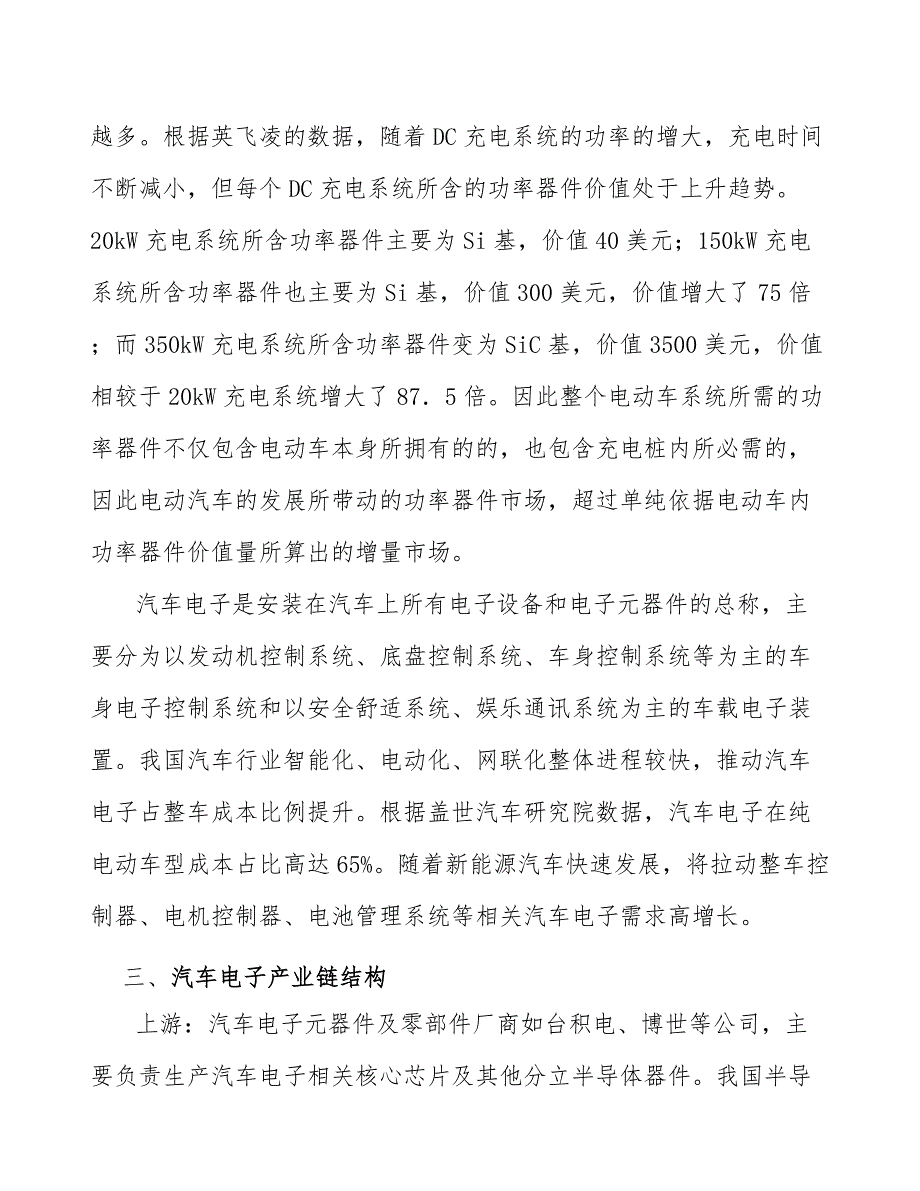 越多。根据英飞凌的数据，随着 DC 充电系统的功率的增大，充电时间
不断减小，但每个 DC 充电系统所含的功率器件价值处于上升趋势。
20kW 充电系统所含功率器件主要为 Si 基，价值 40 美元；150kW 充电
系统所含功率器件也主要为 Si 基，价值 300 美元，价值增大了 75 倍
；而 350kW 充电系统所含功率器件变为 SiC 基，价值 3500 美元，价值
相较于 20kW 充电系统增大了 87．5 倍。因此整个电动车系统所需的功
率器件不仅包含电动车本身所拥有的的，也包含充电桩内所必需的，
因此电动汽车的发展所带动的功率器件市场，超过单纯依据电动车内
功率器件价值量所算出的增量市场。
汽车电子是安装在汽车上所有电子设备和电子元器件的总称，主
要分为以发动机控制系统、底盘控制系统、车身控制系统等为主的车
身电子控制系统和以安全舒适系统、娱乐通讯系统为主的车载电子装
置。我国汽车行业智能化、电动化、网联化整体进程较快，推动汽车
电子占整车成本比例提升。根据盖世汽车研究院数据，汽车电子在纯
电动车型成本占比高达 65%。随着新能源汽车快速发展，将拉动整车控
制器、电机控制器、电池管理系统等相关汽车电子需求高增长。
三、汽车电子产业链结构
上游：汽车电子元器件及零部件厂商如台积电、博世等公司，主
要负责生产汽车电子相关核心芯片及其他分立半导体器件。我国半导